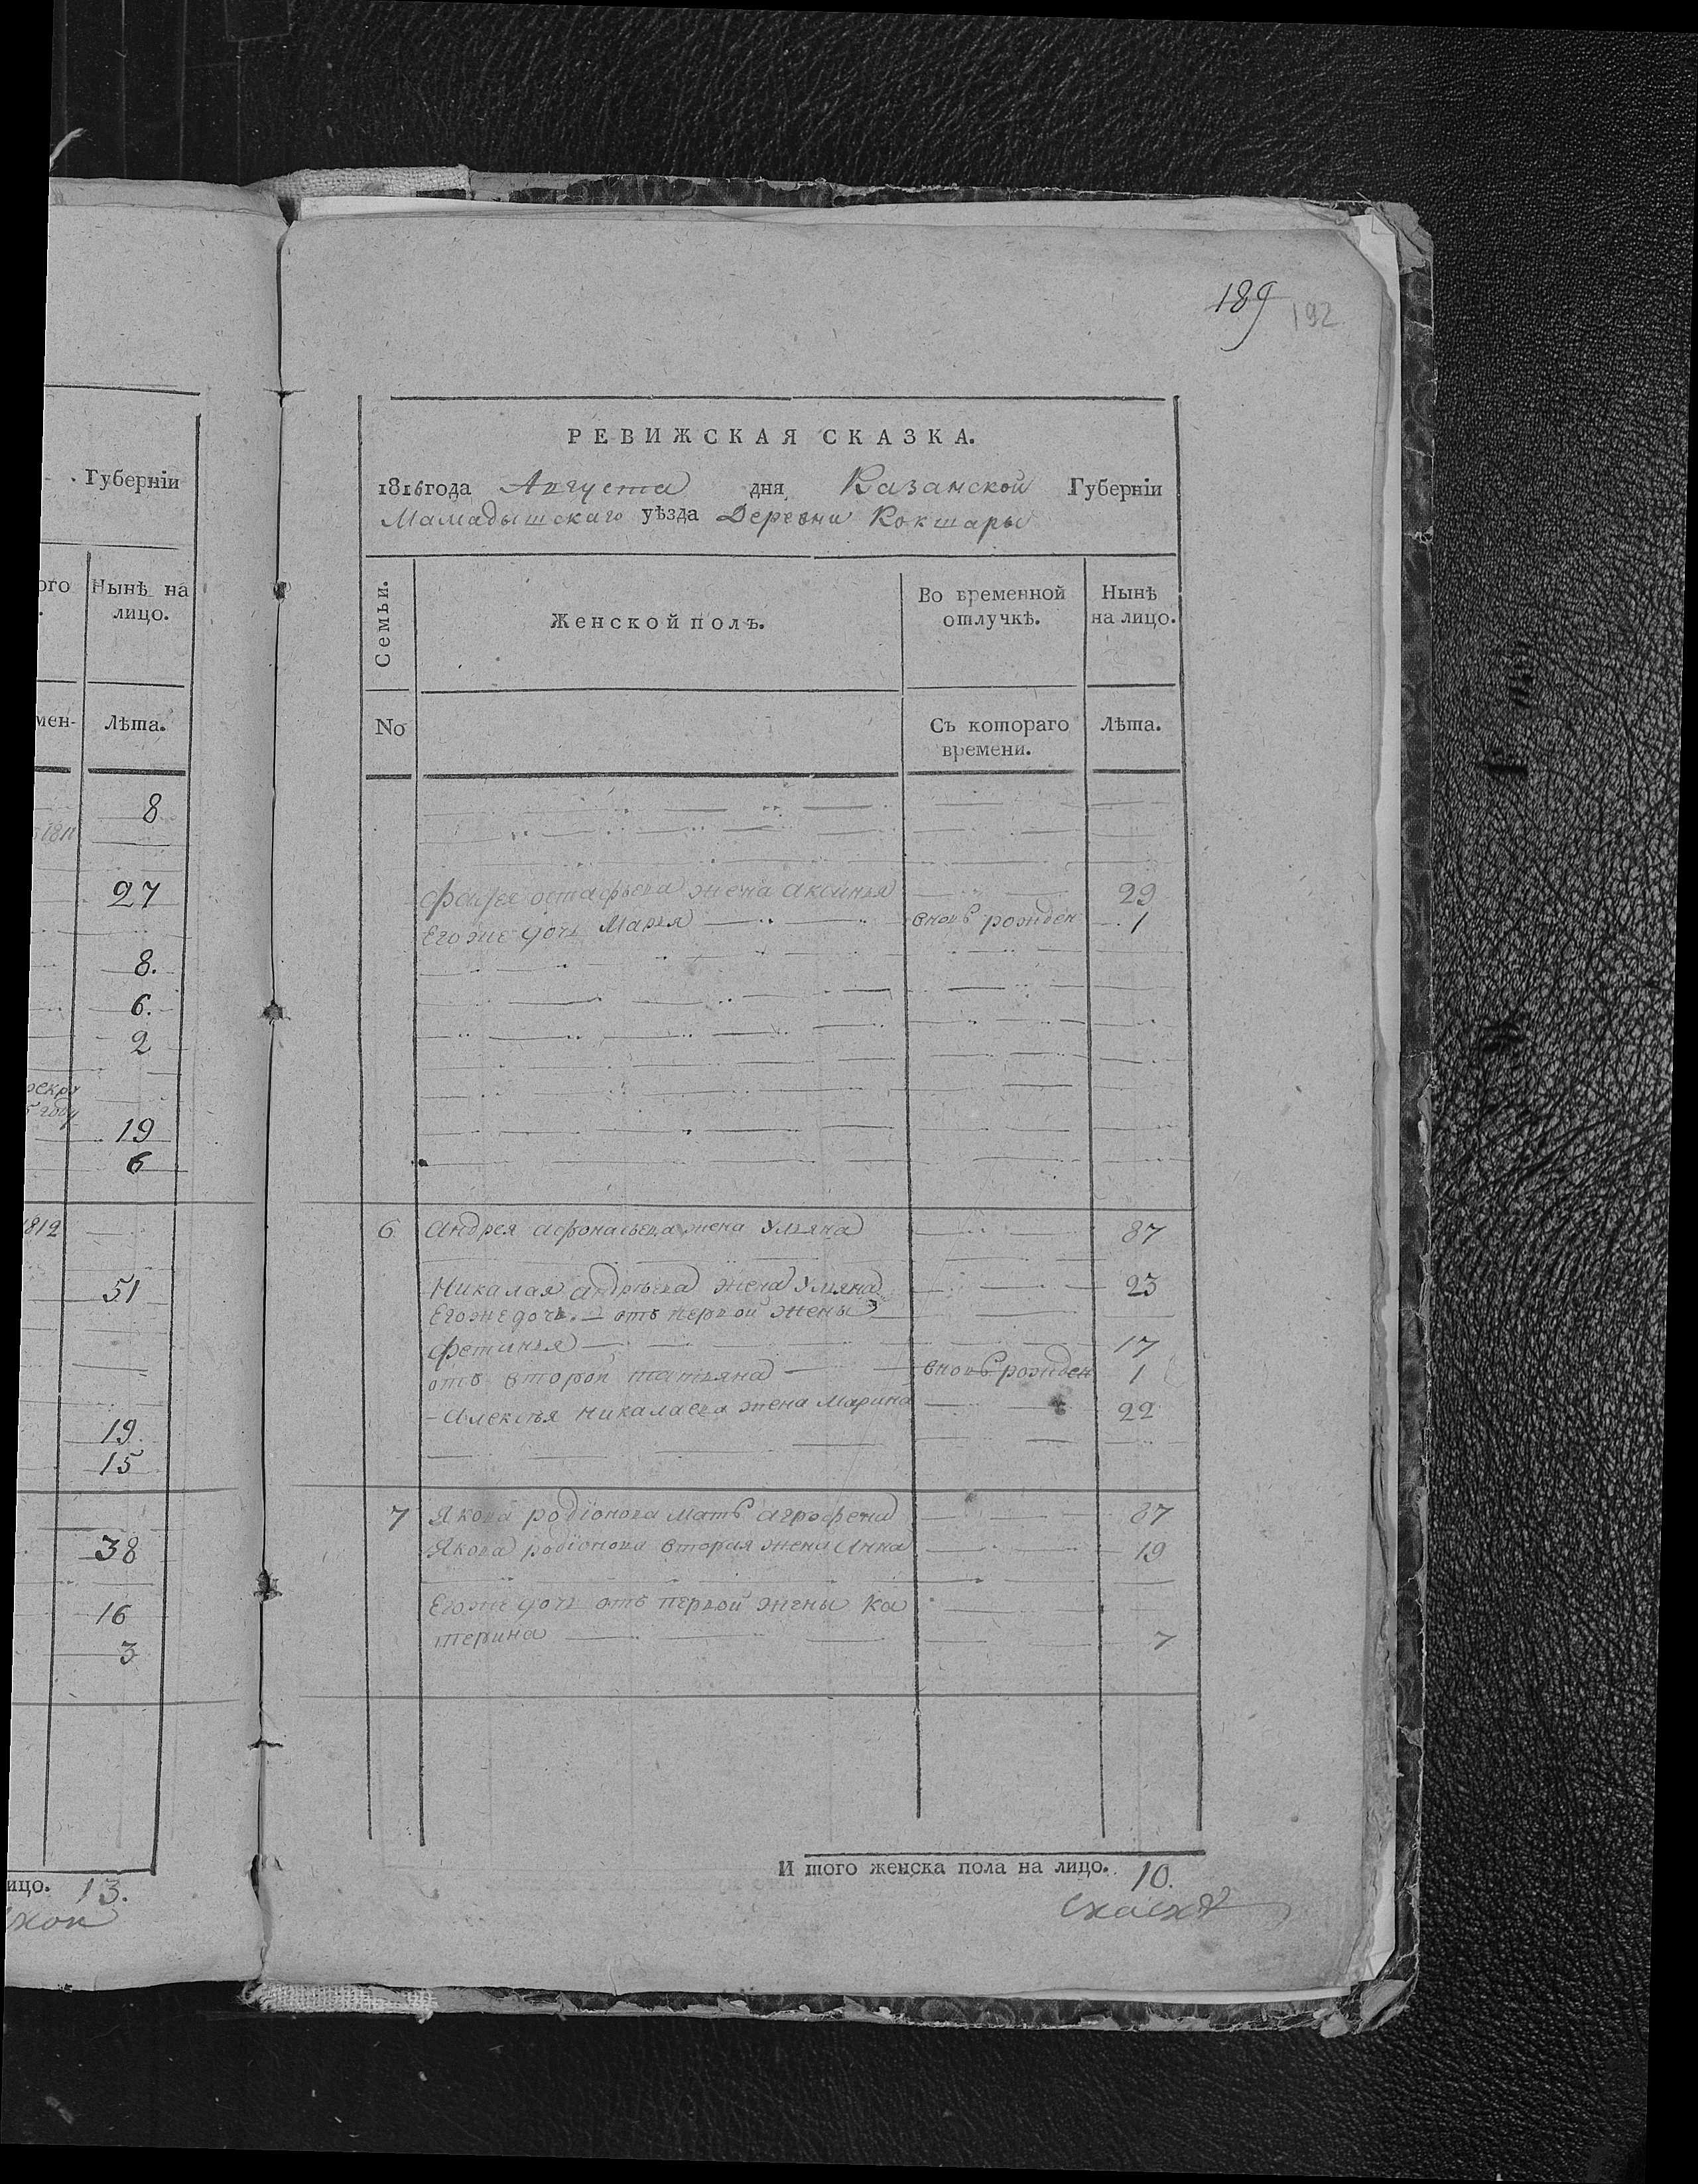 189 192
Губерніи
ого Нынѣ на
лицо.
мен- Лѣта.
8
1811
27
8.
6.
2
рекру
году
19
6
1812
51
19
15
38
16
3
ицо. 13.
РЕВИЖСКАЯ СКАЗКА.
1816года Августа дня Казанской Губерніи
Мамадышскаго уѣзда Деревни Кокшары
Семьи. Женской полъ. Во временной отлучкѣ. Нынѣ на лицо.
No Съ котораго времени. Лѣта.
остафьева жена аксинья 29
Егоже дочь Марья вновь рожден 1
6 Андрея афонасьева жена Ульяна 87
Никалая андрѣева жена Ульяна 23
Егоже дочь отъ первой жены
фетинья 17
отъ второй татьяна вновь рожден 1
Алексѣя никалаева жена Марина 22
7 Якова родіонова мать агрофена 87
Якова родіонова вторая жена Анна 19
Егоже дочь отъ первой жены Ка
терина 7
И того женска пола на лицо. 10.